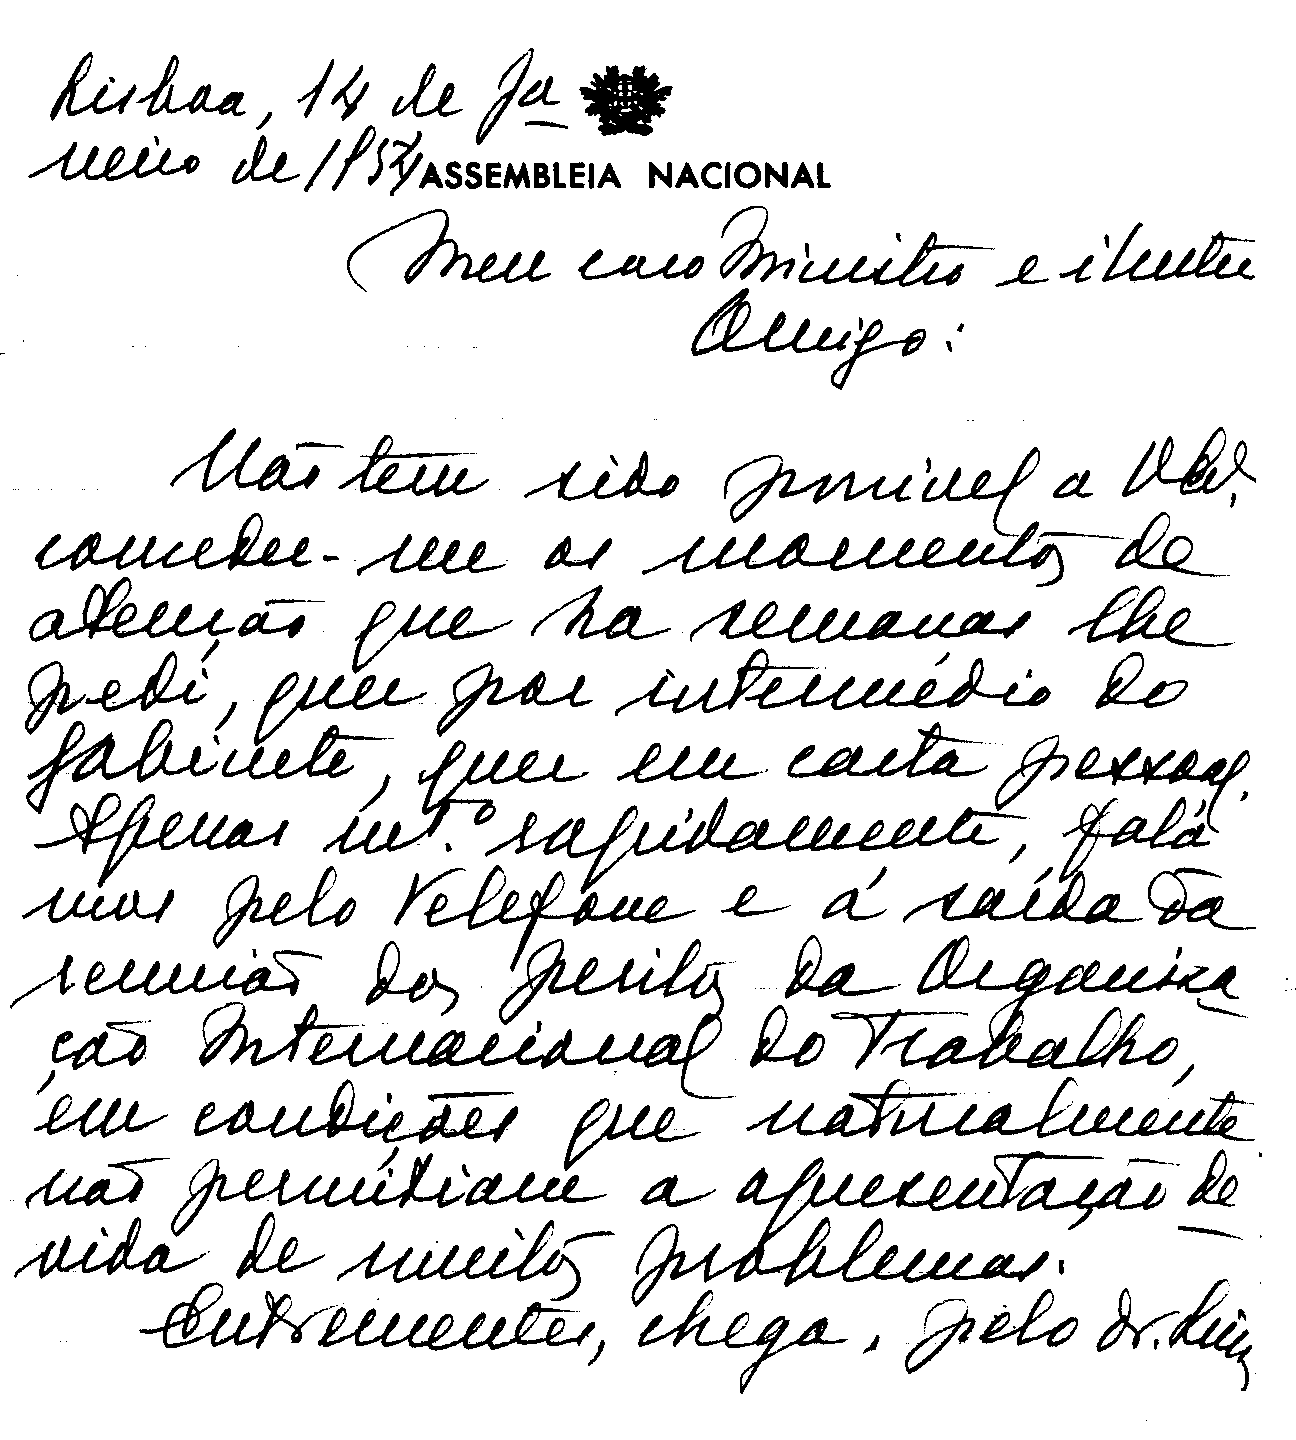 Lisboa, 14 de Ja
neiro de 195
ASSEMBLEIA NACIONAL
Meu caro Ministro e ilustre
Amigo:
Não tem sido possivel a V. Ex.ª
conceder-me os momentos de
atenção que ha semanas lhe
pedi, quer por intermédio do
gabinete, quer em carta pessoal.
Apenas mt.º rapidamente, falá
mos pelo telefone e á saída da
reunião dos peritos da Organiza
ção Internacional do Trabalho,
em condições que naturalmente
não permitiam a apresentação de
vida de muitos problemas.
Entrementes, chega, pelo dr. Luiz